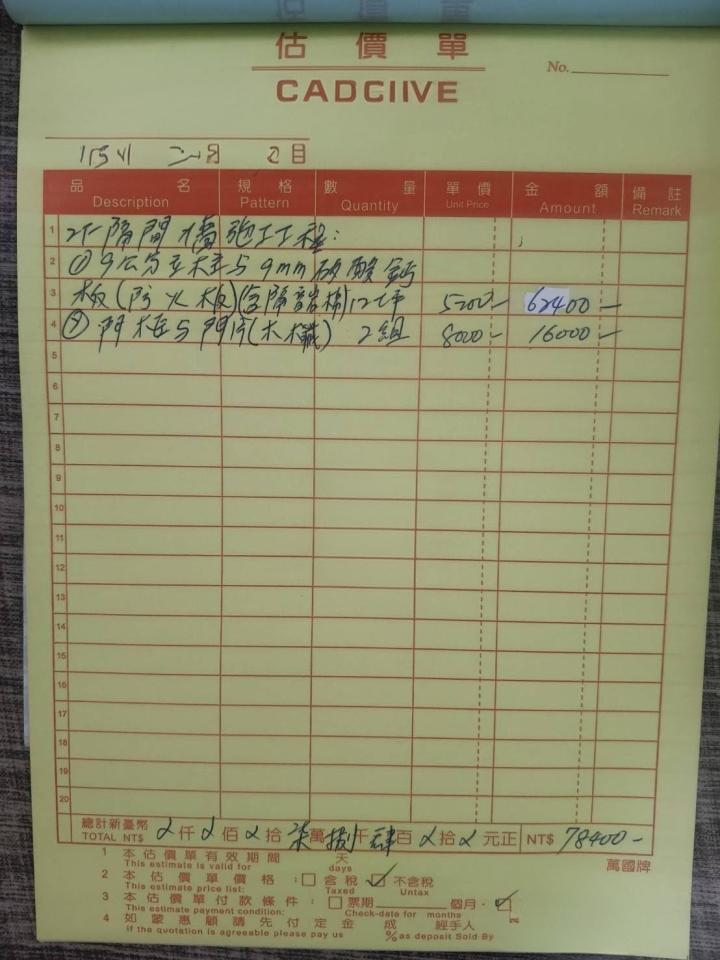 估價單
No.
CADCIIVE
月 日
品名 規格 數量 單價 金額 備註
Description Pattern Quantity Unit Price Amount Remark
1 隔間牆施工工程：
2 ① 9公分立柱与9mm矽酸鈣
3 板(防火板)(含隔音棉) 12坪 5200- 62400-
4 ② 門框与門片(木櫃) 2組 8000- 16000-
5
6
7
8
9
10
11
12
13
14
15
16
17
18
19
20
總計新臺幣 仟 佰 拾 柒萬捌千肆百 拾 元正 NT$ 78400-
TOTAL NT$
萬國牌
1 本估價單有效期間 天
This estimate is valid for days
2 本估價單價格：□含稅 ☑不含稅
This estimate price list: Taxed Untax
3 本估價單付款條件：□票期 個月．☑
This estimate payment condition: Check-date for months
4 如蒙惠顧請先付定金 成 經手人
if the quotation is agreeable please pay us % as deposit Sold By